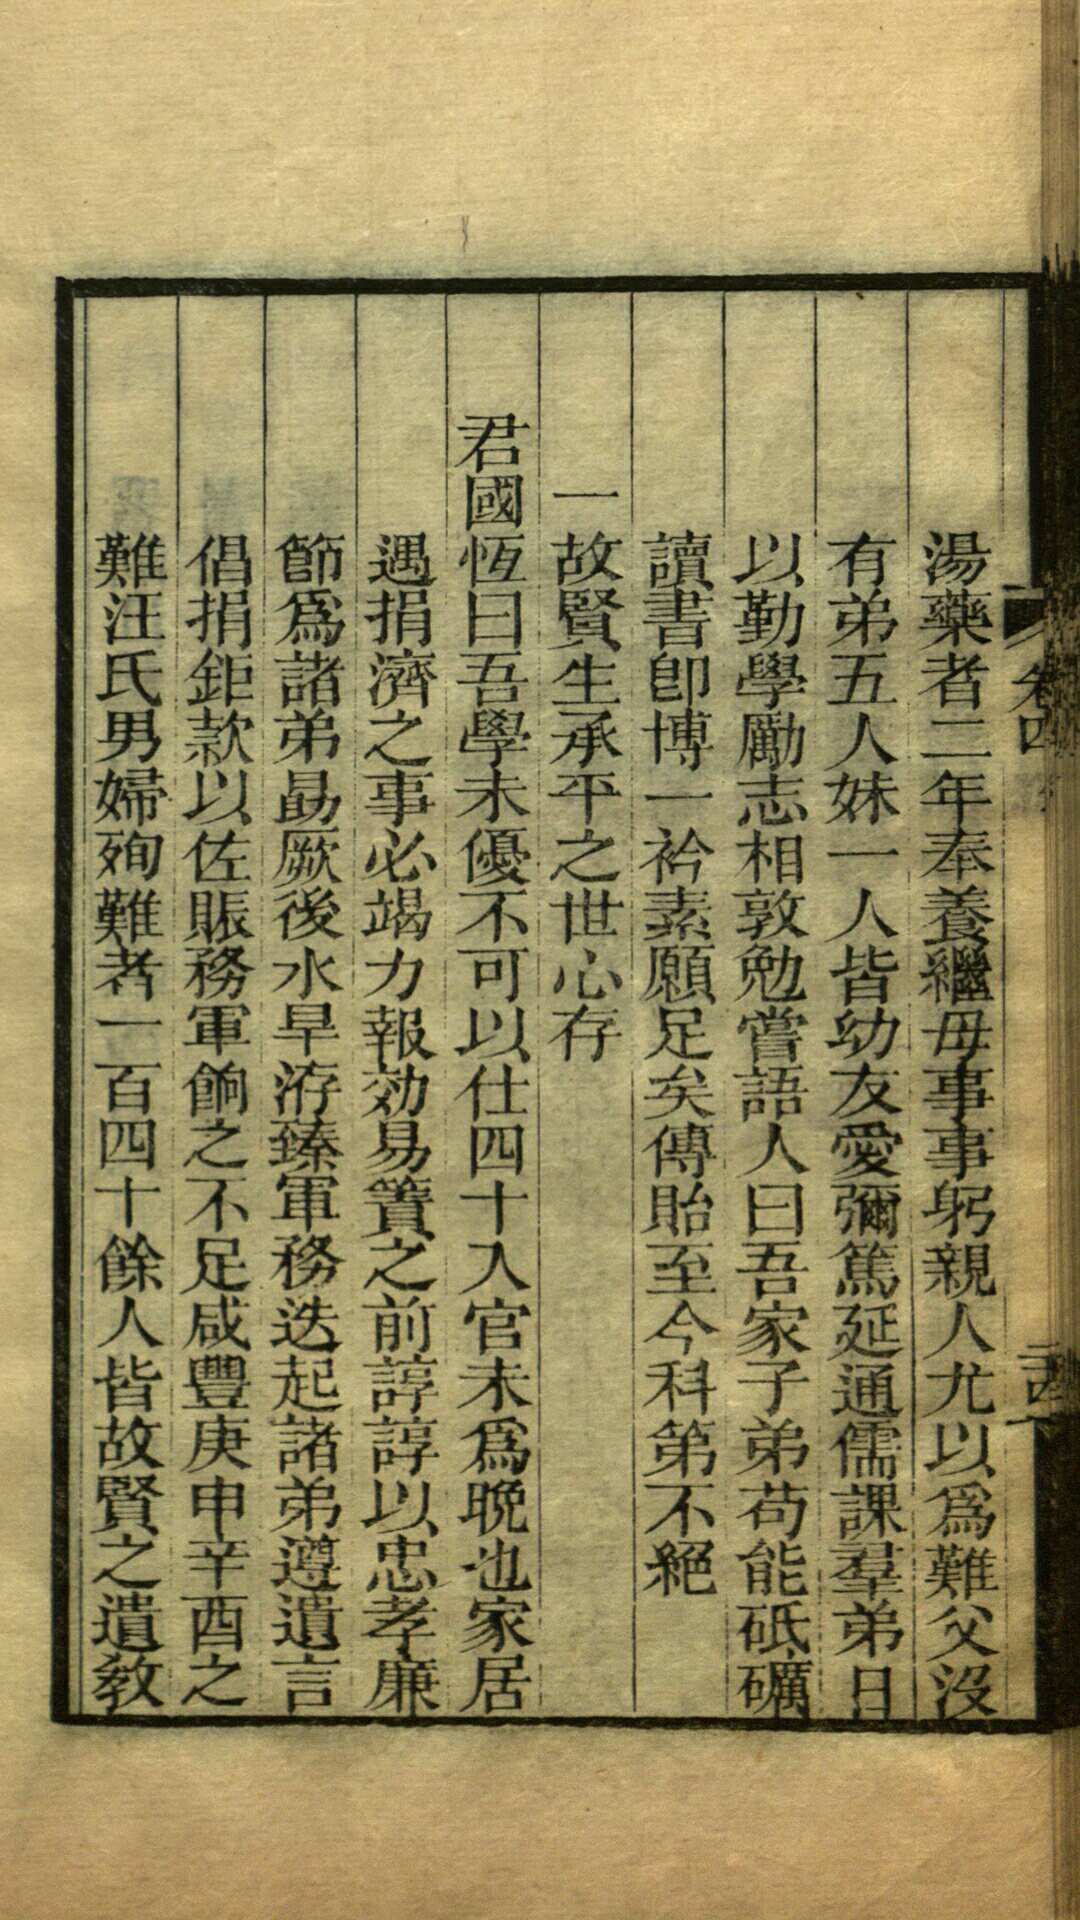 湯藥者二年奉養繼母事事躬親人尤以爲難父沒
有弟五人妹一人皆幼友愛彌篤延通儒課羣弟日
以勤學勵志相敦勉嘗語人曰吾家子弟苟能砥礪
讀書卽博一衿素願足矣傳貽至今科第不絕
一故賢生承平之世心存
君國恆曰吾學未優不可以仕四十入官未爲晩也家居
遇捐濟之事必竭力報効易簀之前諄諄以忠孝廉
節爲諸弟勗厥後水旱洊臻軍務迭起諸弟遵遺言
倡捐鉅款以佐賑務軍餉之不足咸豐庚申辛酉之
難汪氏男婦殉難者一百四十餘人皆故賢之遺敎
卷四